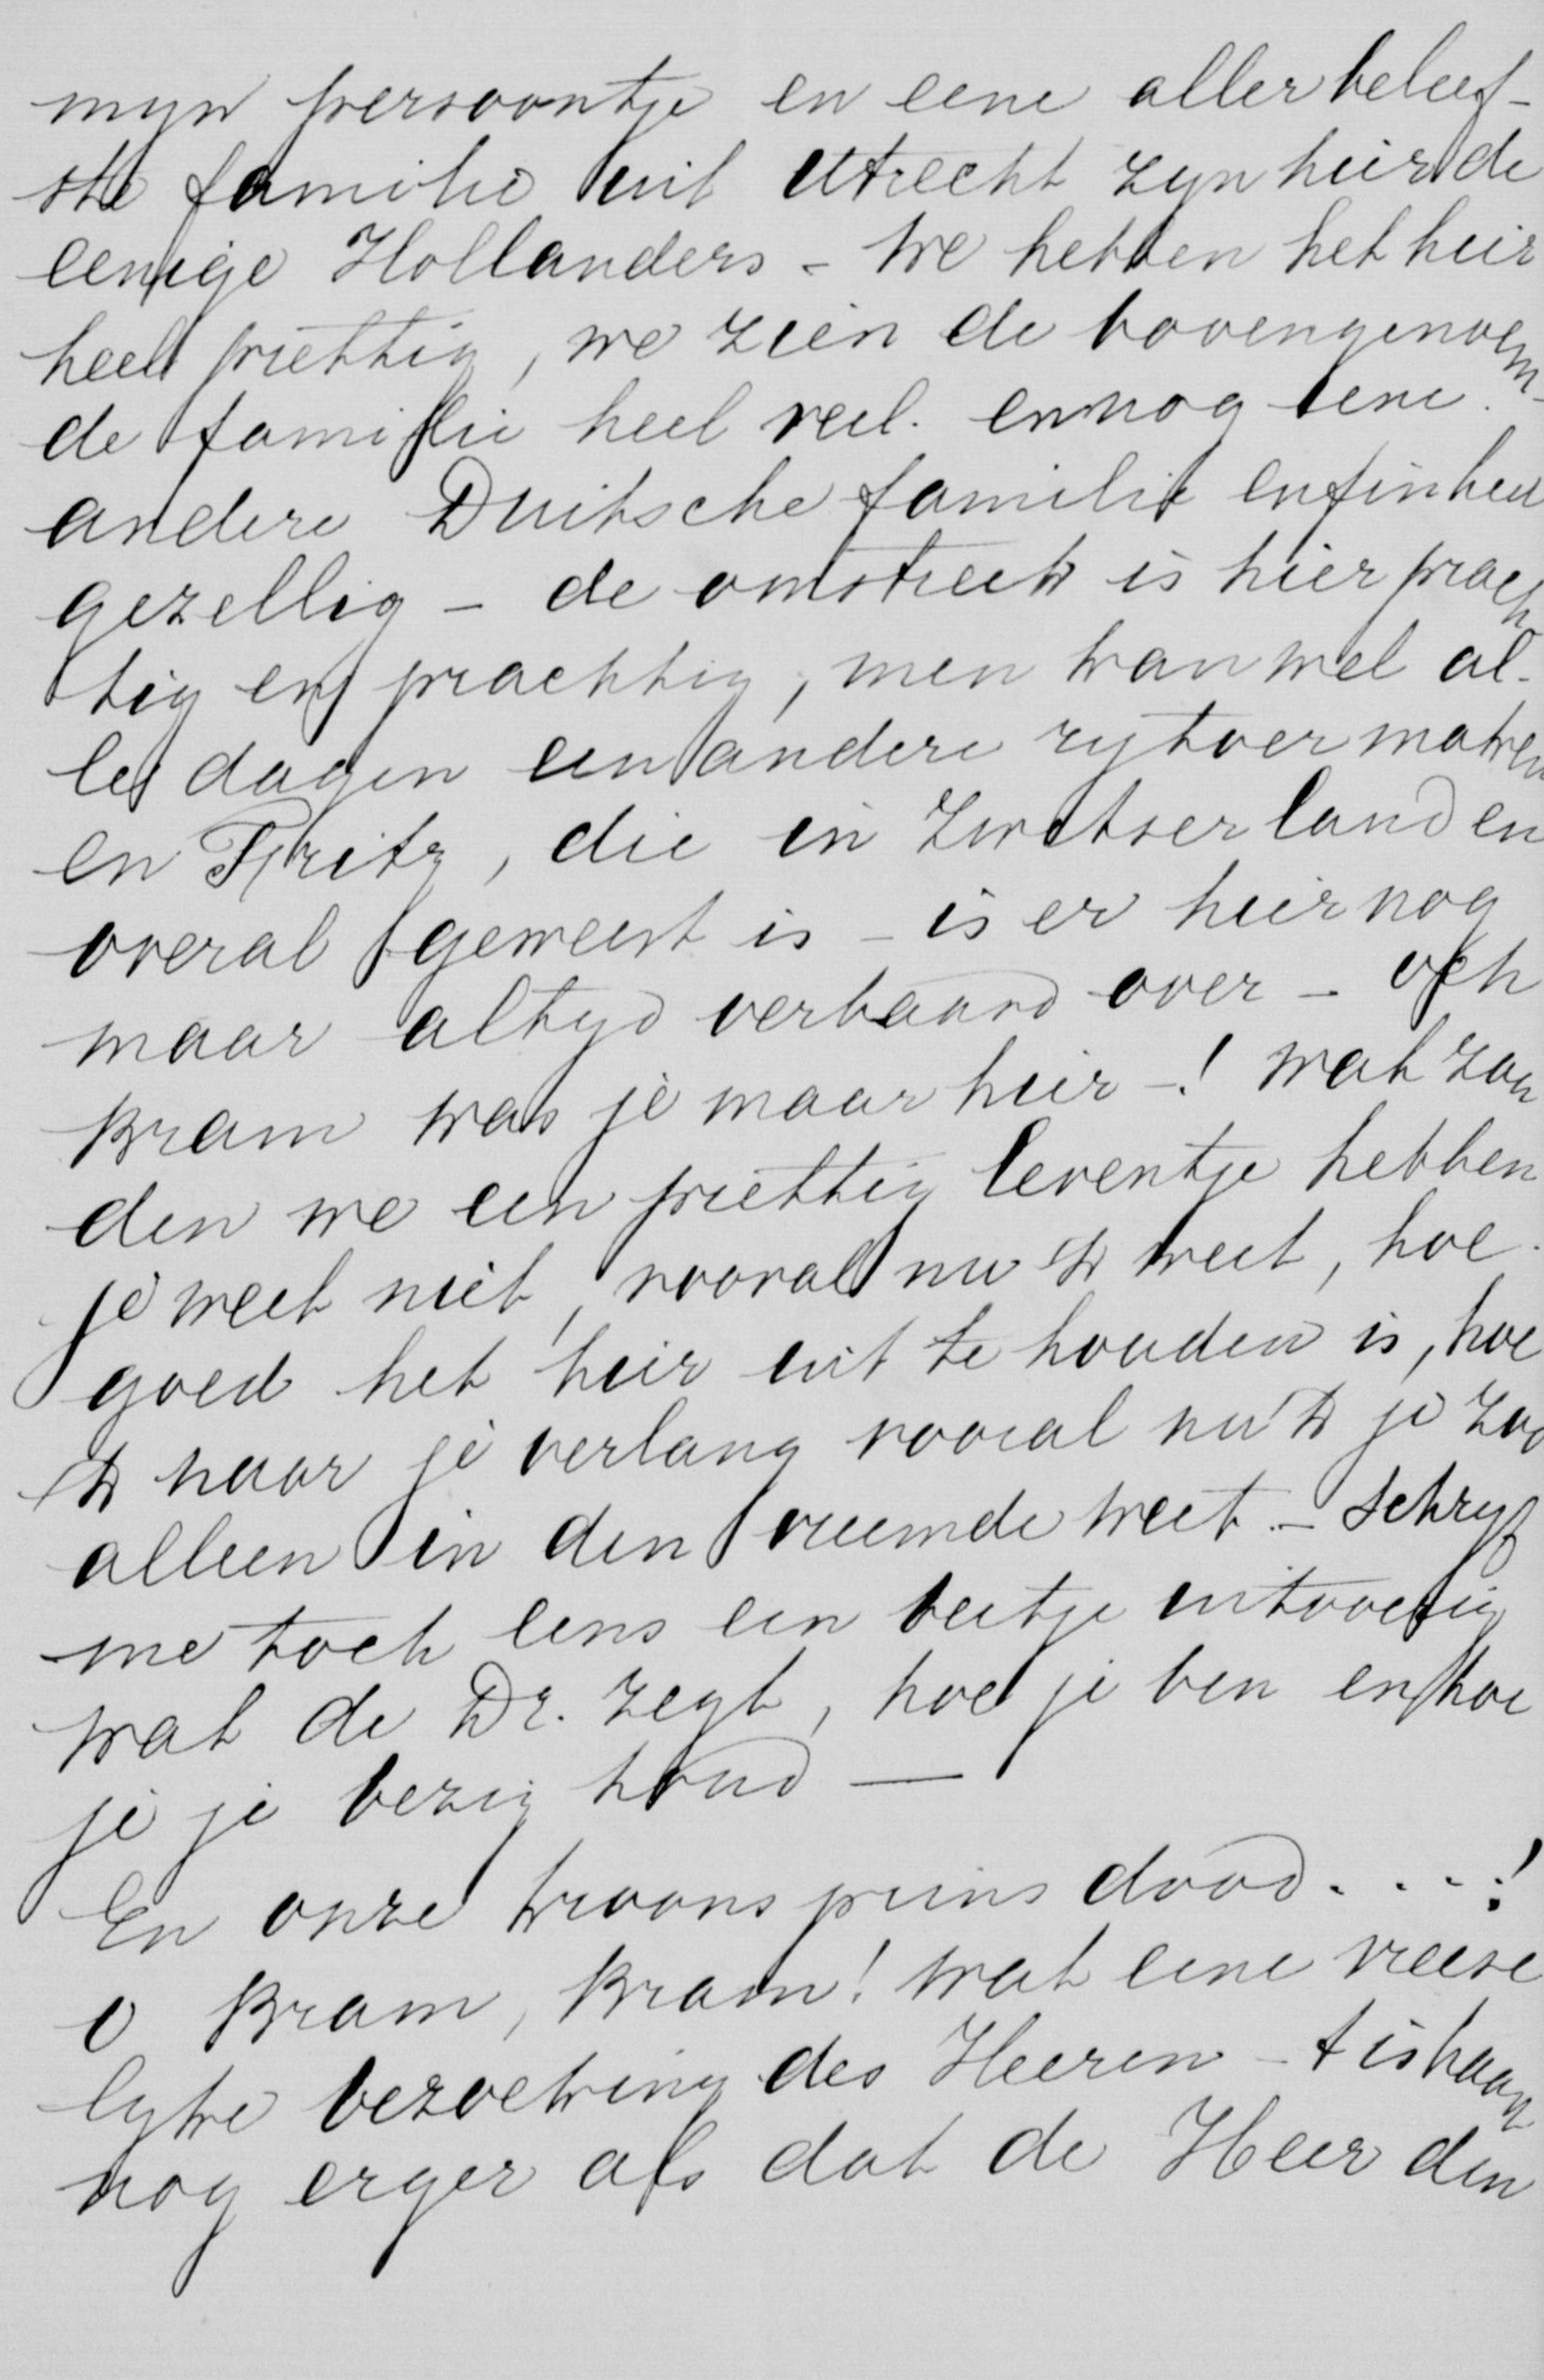 myn persoontje en eene allerbeleef-
ste familie uit Utrecht zyn hier de
eenige Hollanders - We hebben het hier
heel prettig, we zien de bovengenoem-
de familie heel veel. en nog eene
andere Duitsche familie enfin heel
gezellig - de omstreek is hier prach
tig en prachtig, men kan wel al-
le dagen een andere rytoer maken
en Fritz, die in Zwitserland en
overal geweest is - is er hier nog
maar altyd verbaasd over - och
Bram was je maar hier -! wat zou
den we een prettig leventje hebben
je weet niet, vooral nu ik weet, hoe
goed het hier uit te houden is, hoe
ik naar je verlang vooral nu ik je zoo
alleen in den vreemde weet - Schryf
me toch eens een beetje uitvoerig
wat de Dr. zegt, hoe je ben en hoe
je je bezig houd —
En onze kroonsprins dood....!
o Bram, Bram! wat eene vreese
lyke bezoeking des Heeren - t is haast
nog erger als dat de Heer den